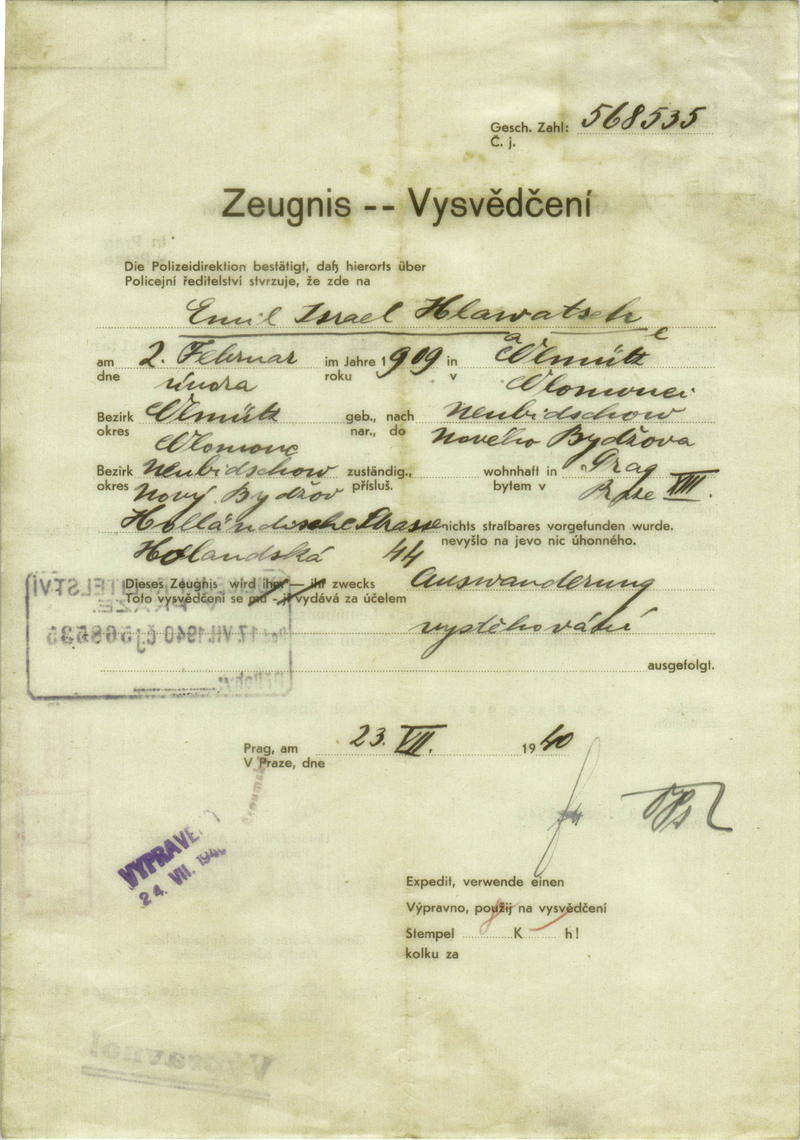 Gesch. Zahl: 568535
Č. j.
Zeugnis -- Vysvědčení
Die Polizeidirektion bestätigt, daß hierorts über
Policejní ředitelství stvrzuje, že zde na
Emil Israel Hlawatsch
am 2. Februar im Jahre 1909 in Olmütz
dne února roku v Olomouci
Bezirk Olmütz geb., nach Neubidschow
okres Olomouc nar., do Nového Bydžova
Bezirk Neubidschow zuständig., wohnhaft in Prag
okres Nový Bydžov přísluš. bytem v Praze VIII.
Holländische Strasse nichts strafbares vorgefunden wurde.
Holandská 44 nevyšlo na jevo nic úhonného.
Dieses Zeugnis wird ihm — ihr zwecks Auswanderung
Toto vysvědčení se mu - jí vydává za účelem
vystěhování
ausgefolgt.
17 VII. 1940 čj 568535
Prag, am 23. VII. 1940
V Praze, dne
VYPRAVENO
24. VII. 1940
Expedit, verwende einen
Výpravno, použij na vysvědčení
Stempel 8 K — h!
kolku za
Výpravno!